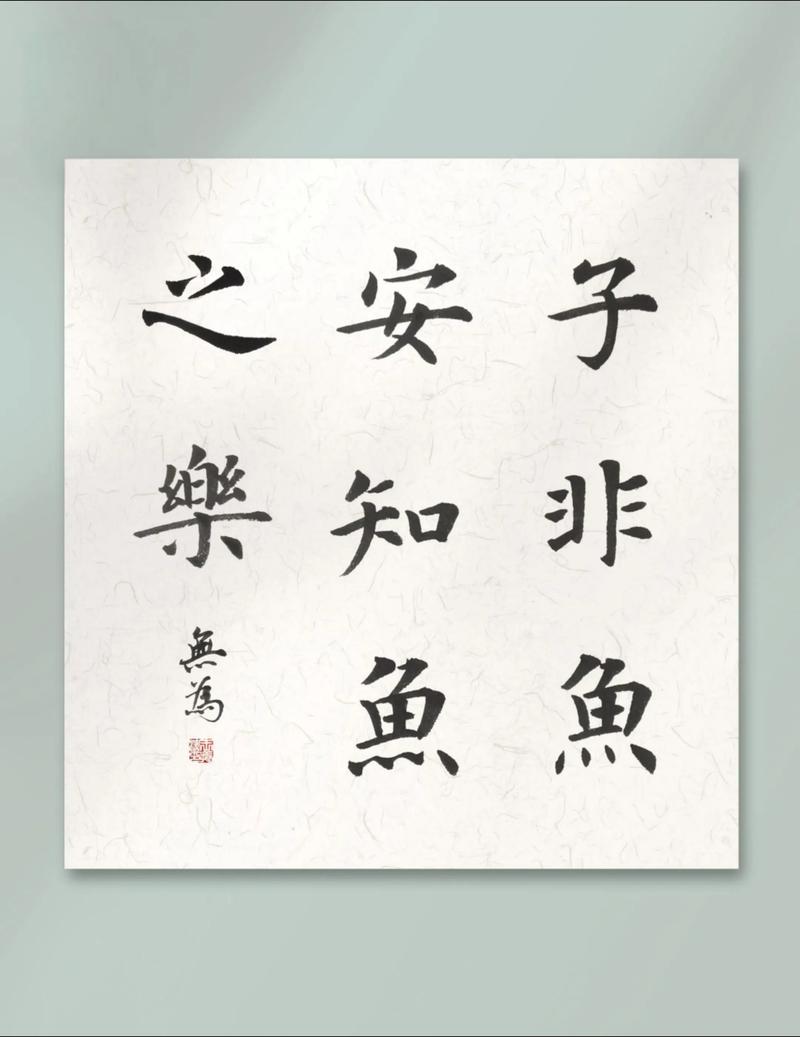 子非魚
安知魚
之樂
無為